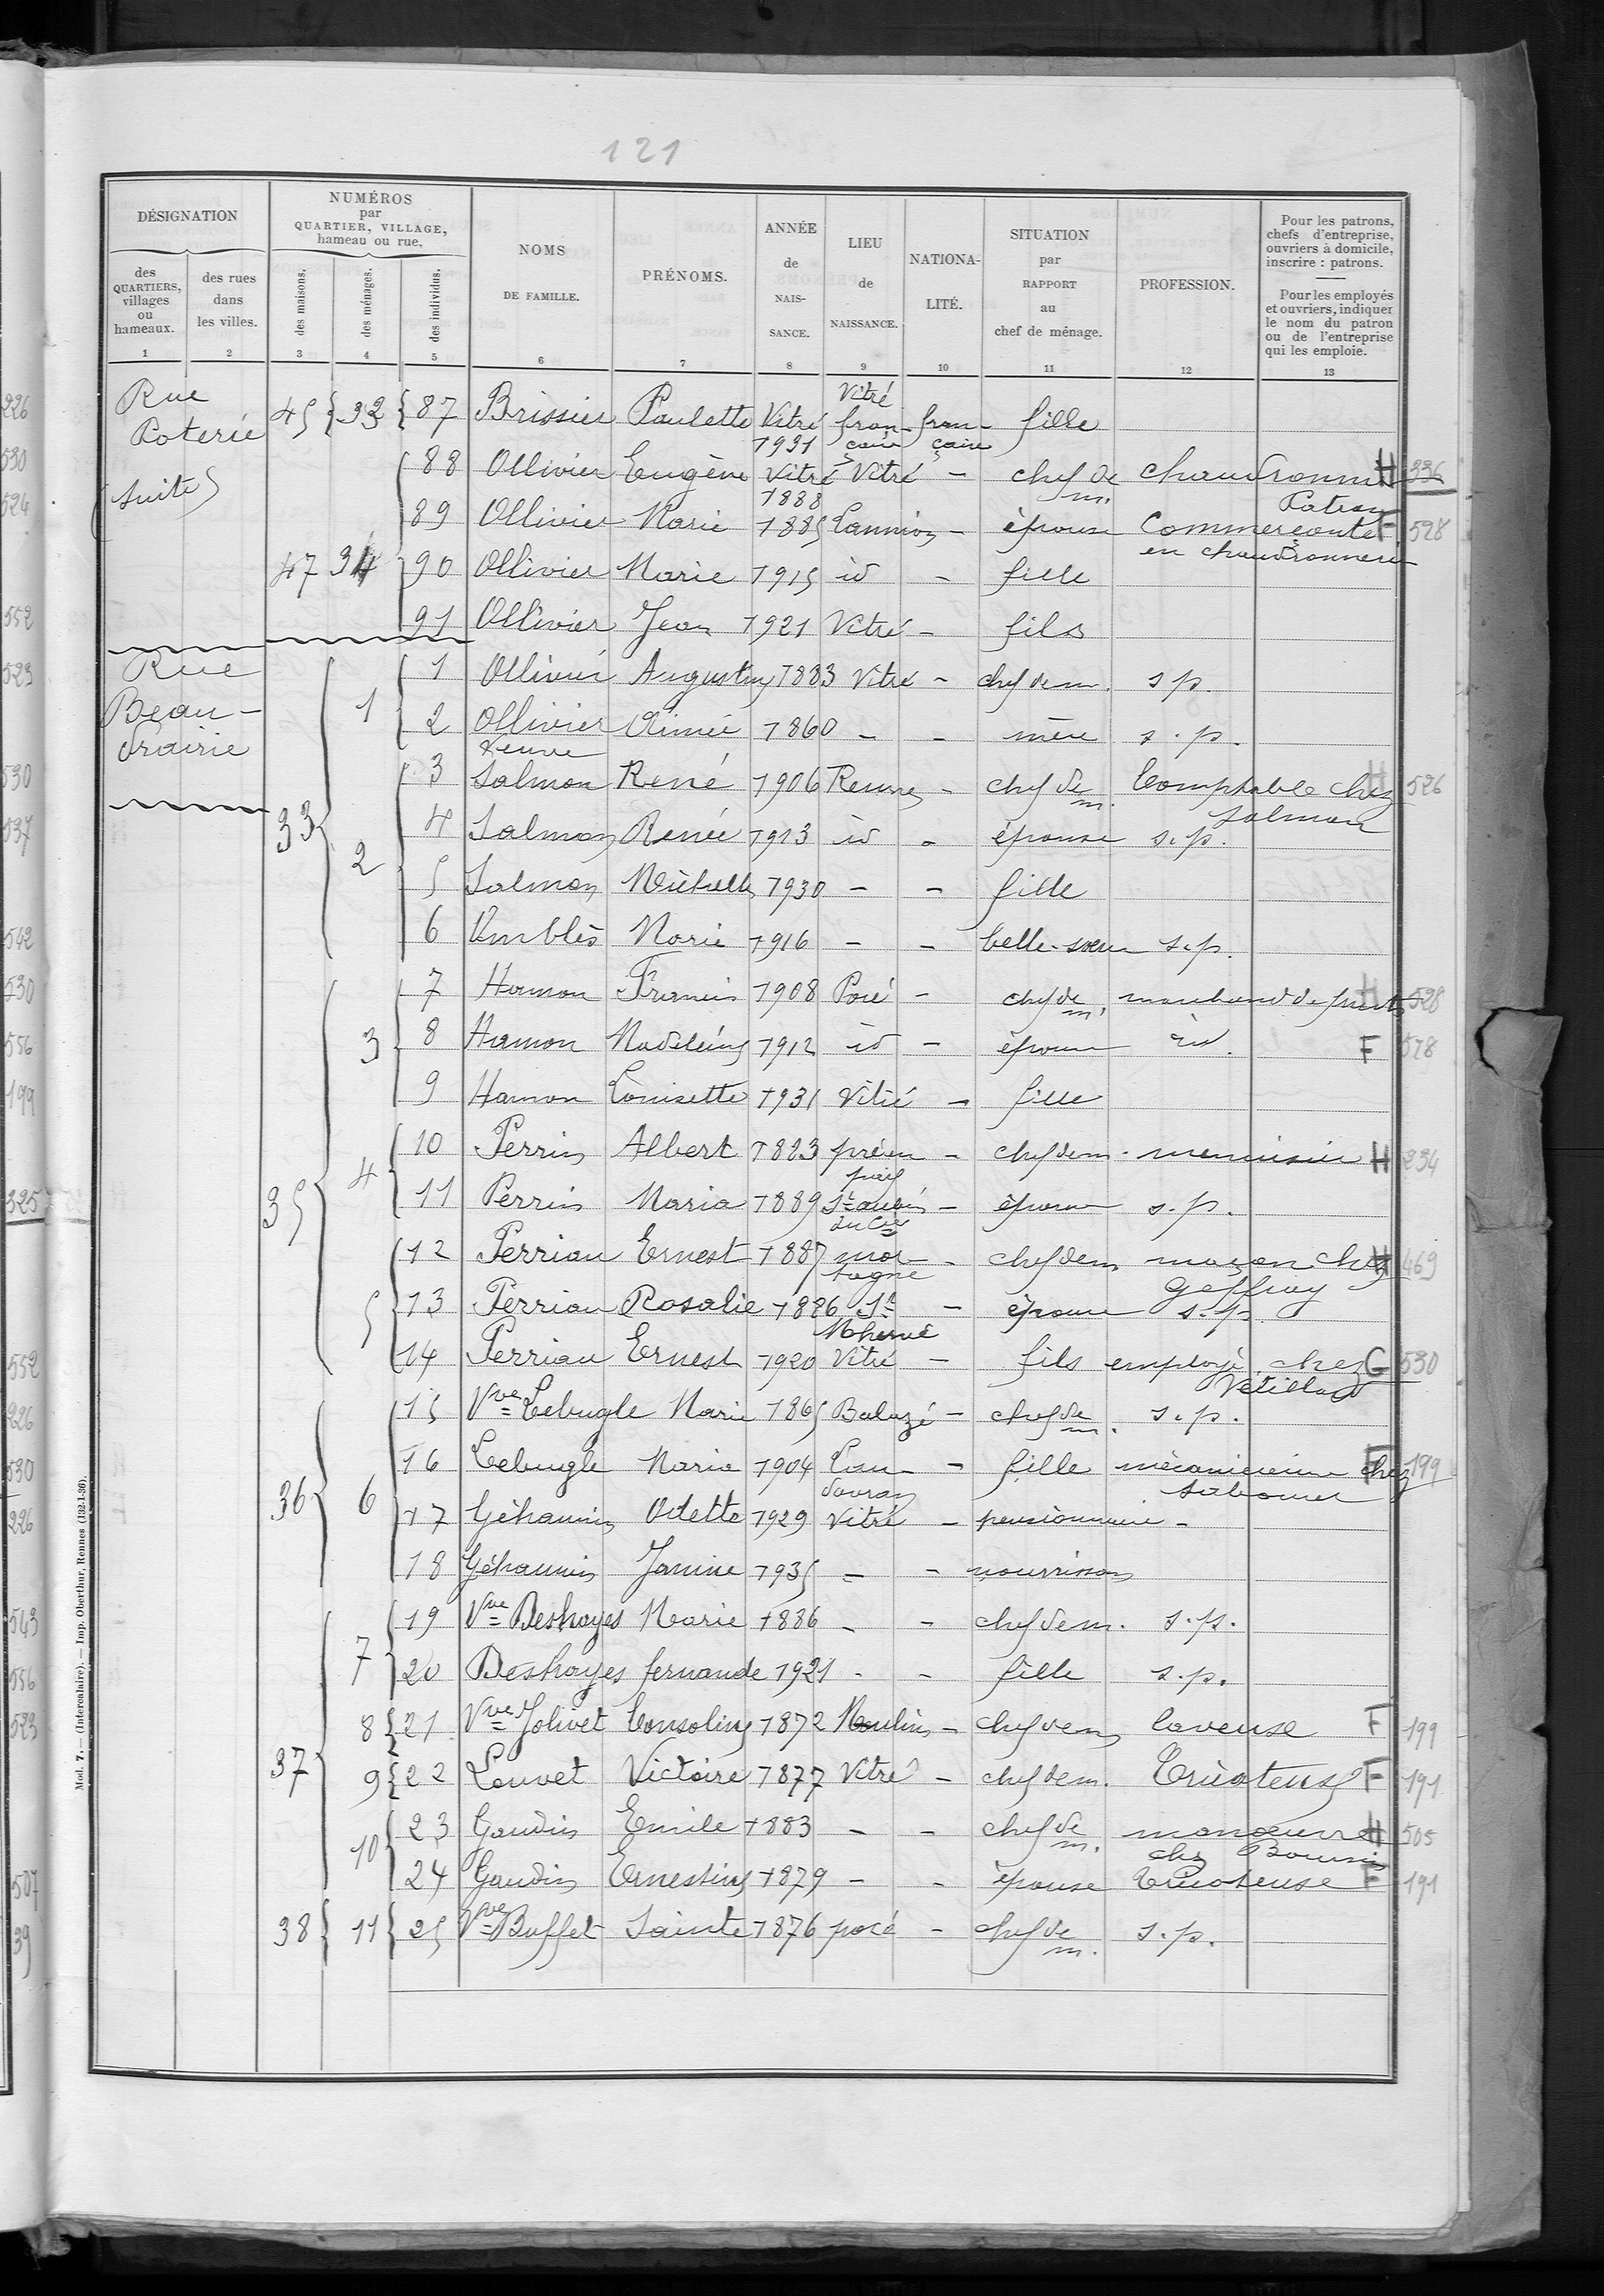 121
DÉSIGNATION
NUMÉROS
par
QUARTIER, VILLAGE,
hameau ou rue.
des
QUARTIERS,
villages
ou
hameaux.
des rues
dans
les villes.
des maisons.
des ménages.
des individus.
NOMS
DE FAMILLE.
PRÉNOMS.
ANNÉE
de
NAIS-
SANCE.
LIEU
de
NAISSANCE.
NATIONA-
LITÉ.
SITUATION
par
RAPPORT
au
chef de ménage.
PROFESSION.
Pour les patrons,
chefs d'entreprise,
ouvriers à domicile,
inscrire : patrons.
Pour les employés
et ouvriers, indiquer
le nom du patron
ou de l'entreprise
qui les emploie.
1 2 3 4 5 6 7 8 9 10 11 12 13
Rue
Poterie
(suite)
45 33 87 Brissier Paulette Vitré 1931 Vitré française française fille
88 Ollivier Eugène Vitré 1888 Vitré - chef de m. chaudronnier H 336
Patron
89 Ollivier Marie 1885 Lannion - épouse commerçante F 528
en chaudronnerie
47 34 90 Ollivier Marie 1915 id - fille
91 Ollivier Jean 1921 Vitré - fils
Rue
Beau-
drairie
33 1 1 Ollivier Augustin 1883 Vitré - chef de m. s.p.
2 Ollivier Aimée 1860 - - mère s.p.
veuve
2 3 Salmon René 1906 Rennes - chef de m. Comptable chez H 526
Salmon
4 Salmon Renée 1913 id - épouse s.p.
5 Salmon Michelle 1930 - - fille
6 Marie 1916 - - belle-soeur s.p.
35 3 7 Hamon Francis 1908 Pocé - chef de m. marchand de fruits H 528
8 Hamon Madeleine 1912 id - épouse id. F 528
9 Hamon Louisette 1931 Vitré - fille
4 10 Perrin Albert 1883 - chef de m. menuisier H 234
11 Perrin Maria 1889 St aubin du Cer - épouse s.p.
5 12 Perriau Ernest 1887 mortagne - chef de m maçon chez H 469
Geffray
13 Perriau Rosalie 1886 St M'hervé - épouse s.p.
14 Perriau Ernest 1920 Vitré - fils employé chez G 530
Vétillard
36 6 15 Vve Lebugle Marie 1865 Balazé - chef de m. s.p.
16 Lebugle Maria 1904 Landavran - fille mécanicienne chez F 199
17 Géhannin Odette 1929 Vitré - pensionnaire -
18 Géhannin Janine 1935 - - nourrisson
37 7 19 Vve Deshayes Marie 1886 - - chef de m. s.p.
20 Deshayes fernande 1921 - - fille s.p.
8 21 Vve Jolivet Consoline 1872 Moulins - chef de m laveuse F 199
9 22 Louvet Victoire 1877 Vitré - chef de m. Tricoteuse F 191
10 23 Gaudin Emile 1883 - - chef de m. manoeuvre H 505
chez
24 Gaudin Ernestine 1879 - - épouse Tricoteuse F 191
38 11 25 Vve Buffet Sainte 1876 pocé - chef de m. s.p.
Mod. 7. — (Intercalaire). — Imp. Oberthur, Rennes (132-1-36).
226
530
524
552
523
530
537
542
530
556
199
325
552
226
530
226
543
556
523
507
39